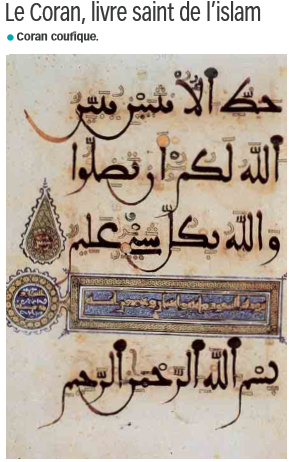 Le Coran, livre saint de l'islam
• Coran coufique.
حظ الأنثيين يبين
الله لكم أن تضلوا
والله بكل شيء عليم
بسم الله الرحمن الرحيم